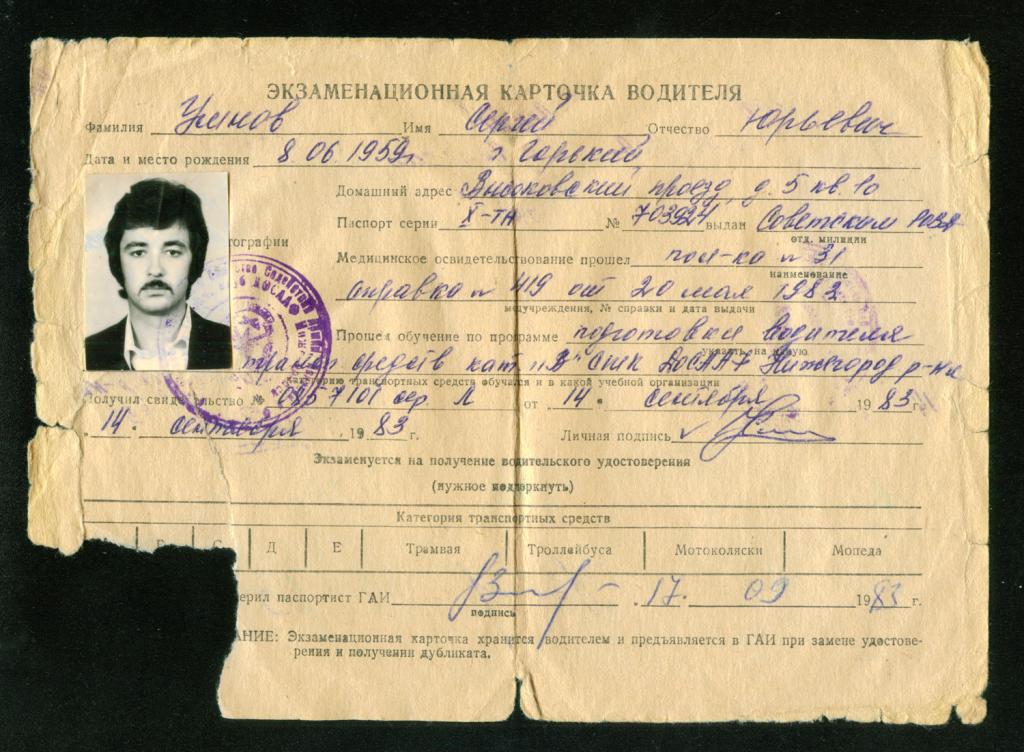 ЭКЗАМЕНАЦИОННАЯ КАРТОЧКА ВОДИТЕЛЯ
Фамилия Имя Сергей Отчество Юрьевич
Дата и место рождения 8 06. 1959г. г. Горький
Домашний адрес Высоковский проезд, д. 5 кв. 10
Паспорт серии X-ТН № 703924 выдан Советским РОВД
отд. милиции
тографии
Медицинское освидетельствование прошел пол-ка № 31
наименование
справка № 419 от 20 мая 1982
медучреждения, № справки и дата выдачи
Прошел обучение по программе подготовки водителя
указать на какую
средств кат. "В" ДОСААФ Нижегород р-на
категорию транспортных средств обучался и в какой учебной организации
Получил свидетельство № 0857101 сер Л от 14. сентября 1983 г.
14. сентября, 1983 г. Личная подпись
Экзаменуется на получение водительского удостоверения
(нужное подчеркнуть)
Категория транспортных средств
Д Е Трамвая Троллейбуса Мотоколяски Мопеда
ерил паспортист ГАИ . 17. 09 1983 г.
подпись
АНИЕ: Экзаменационная карточка хранится водителем и предъявляется в ГАИ при замене удостове-
рения и получении дубликата.